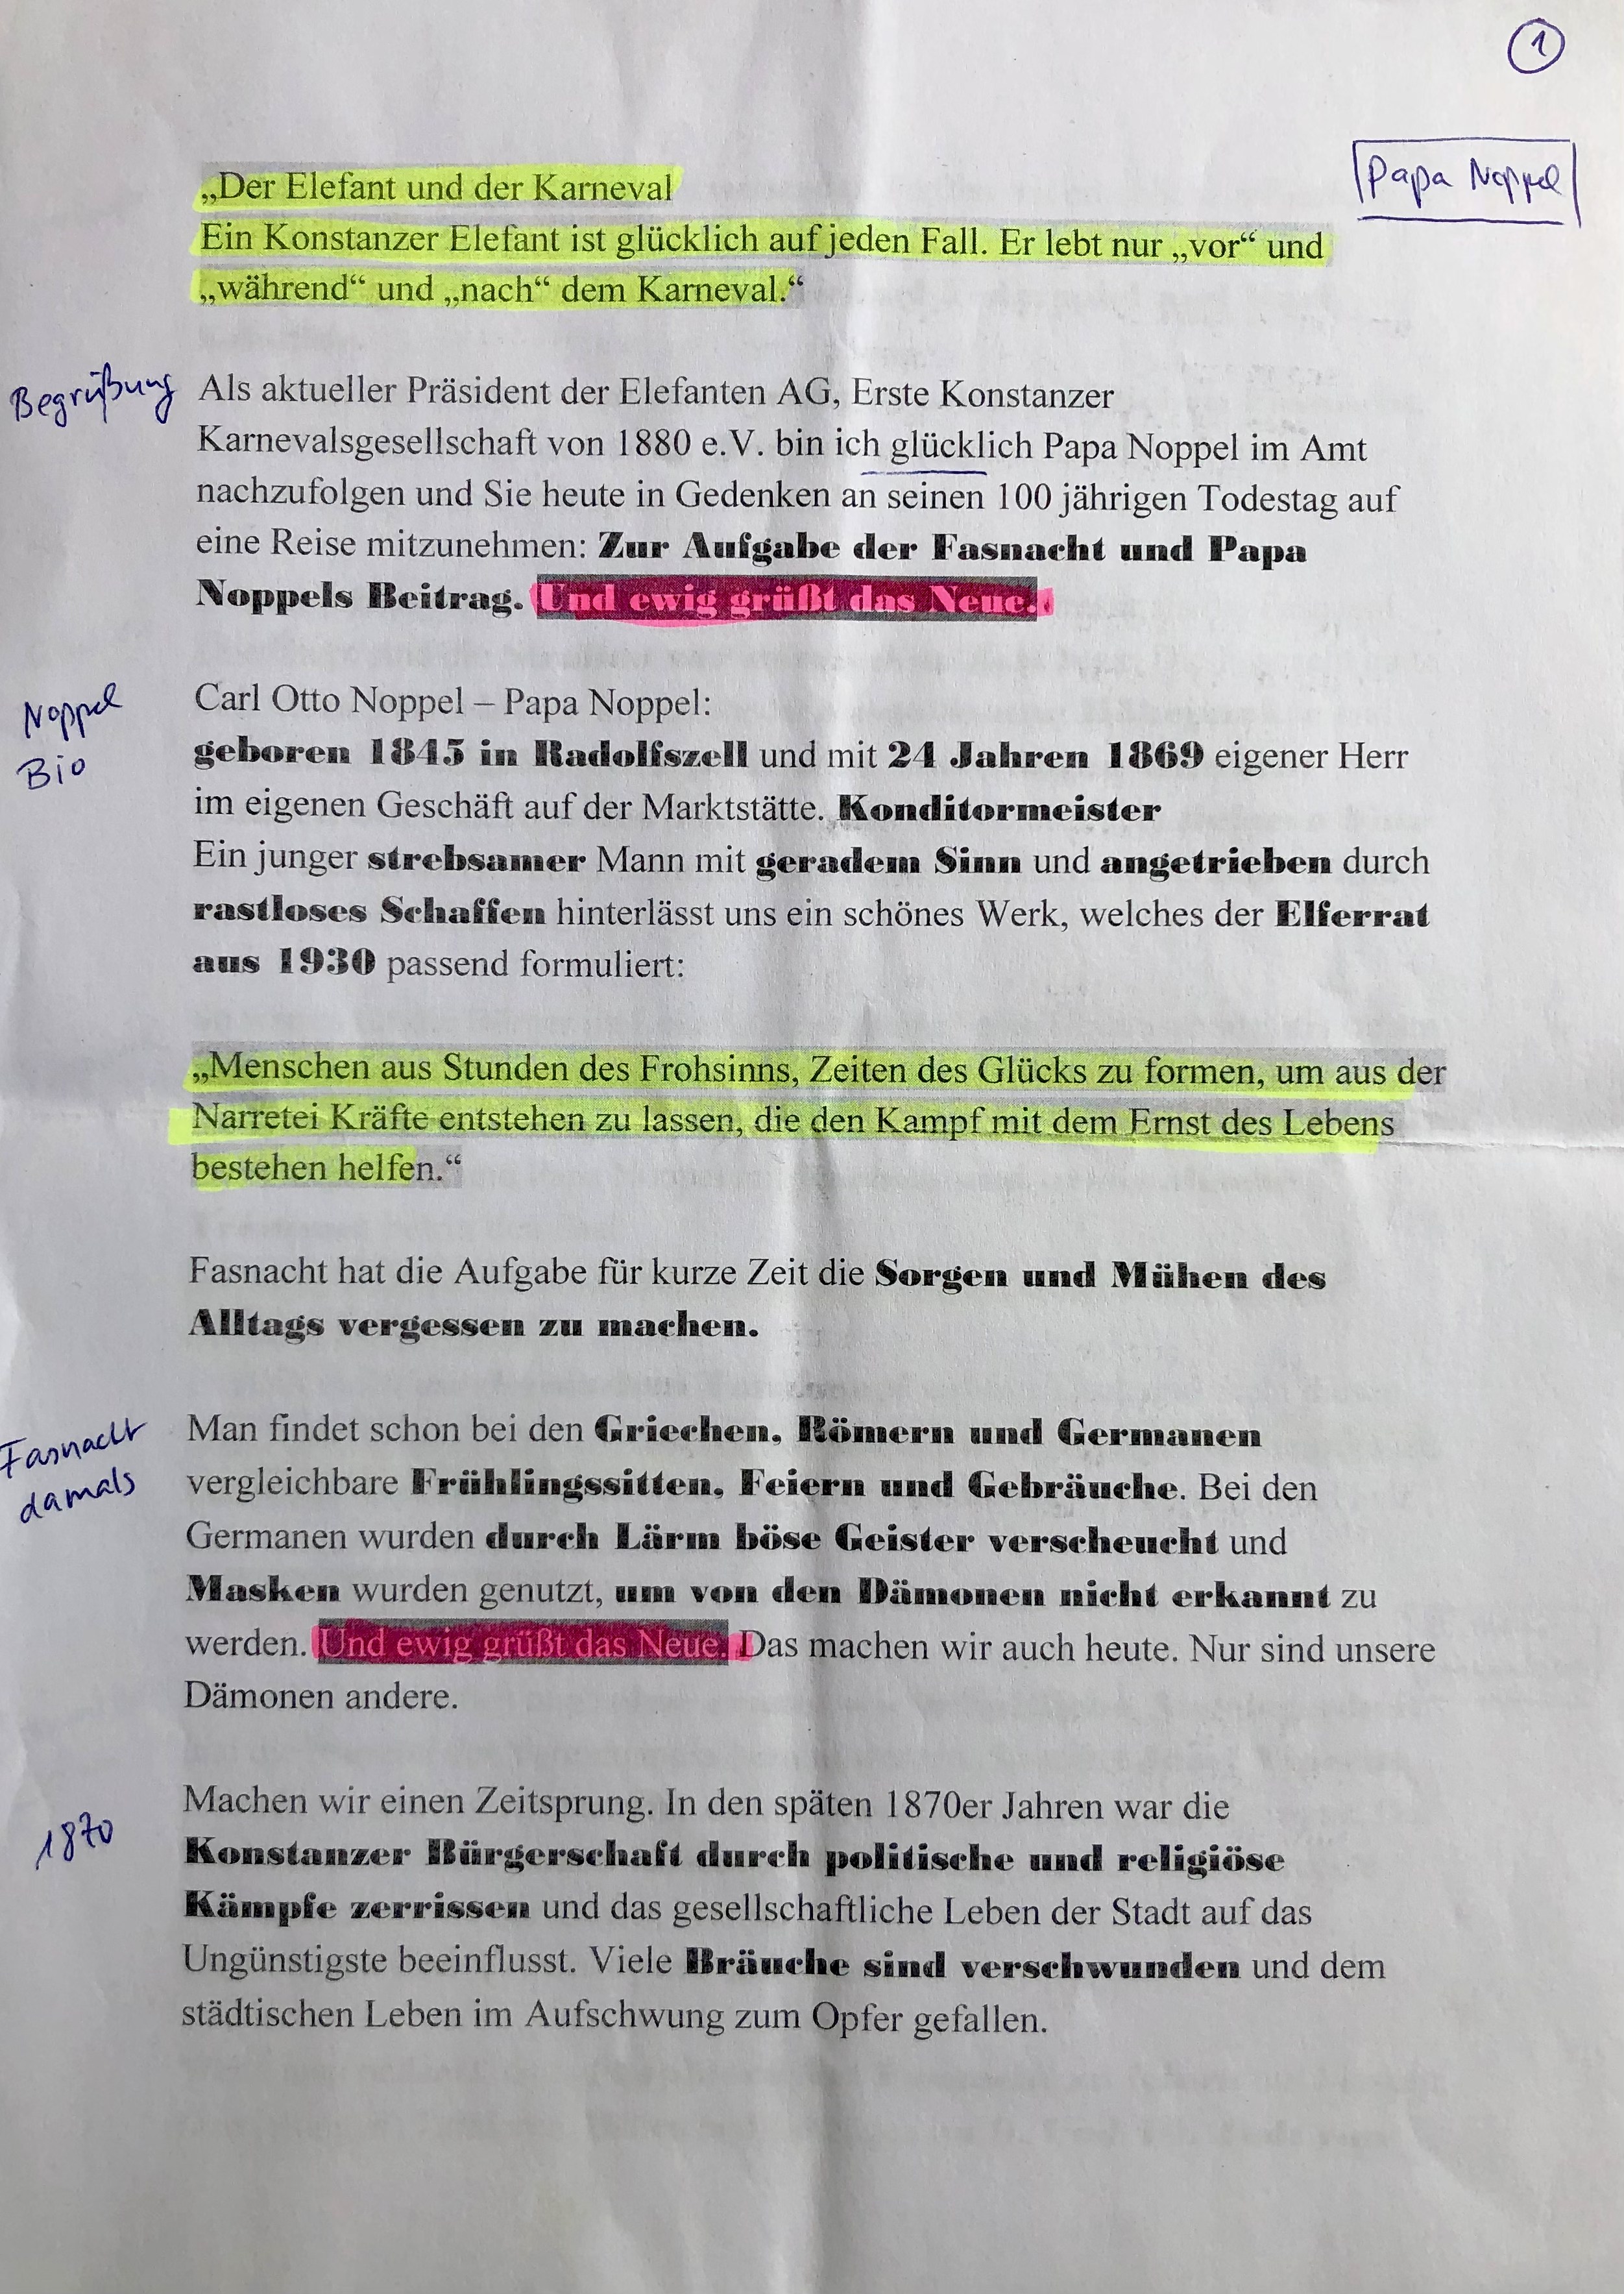 1
Papa Noppel
„Der Elefant und der Karneval
Ein Konstanzer Elefant ist glücklich auf jeden Fall. Er lebt nur „vor“ und
„während“ und „nach“ dem Karneval.“
Begrüßung
Als aktueller Präsident der Elefanten AG, Erste Konstanzer
Karnevalsgesellschaft von 1880 e.V. bin ich glücklich Papa Noppel im Amt
nachzufolgen und Sie heute in Gedenken an seinen 100 jährigen Todestag auf
eine Reise mitzunehmen: Zur Aufgabe der Fasnacht und Papa
Noppels Beitrag. Und ewig grüßt das Neue.
Noppel
Bio
Carl Otto Noppel – Papa Noppel:
geboren 1845 in Radolfszell und mit 24 Jahren 1869 eigener Herr
im eigenen Geschäft auf der Marktstätte. Konditormeister
Ein junger strebsamer Mann mit geradem Sinn und angetrieben durch
rastloses Schaffen hinterlässt uns ein schönes Werk, welches der Elferrat
aus 1930 passend formuliert:
„Menschen aus Stunden des Frohsinns, Zeiten des Glücks zu formen, um aus der
Narretei Kräfte entstehen zu lassen, die den Kampf mit dem Ernst des Lebens
bestehen helfen.“
Fasnacht hat die Aufgabe für kurze Zeit die Sorgen und Mühen des
Alltags vergessen zu machen.
Fasnacht
damals
Man findet schon bei den Griechen, Römern und Germanen
vergleichbare Frühlingssitten, Feiern und Gebräuche. Bei den
Germanen wurden durch Lärm böse Geister verscheucht und
Masken wurden genutzt, um von den Dämonen nicht erkannt zu
werden. Und ewig grüßt das Neue. Das machen wir auch heute. Nur sind unsere
Dämonen andere.
1870
Machen wir einen Zeitsprung. In den späten 1870er Jahren war die
Konstanzer Bürgerschaft durch politische und religiöse
Kämpfe zerrissen und das gesellschaftliche Leben der Stadt auf das
Ungünstigste beeinflusst. Viele Bräuche sind verschwunden und dem
städtischen Leben im Aufschwung zum Opfer gefallen.